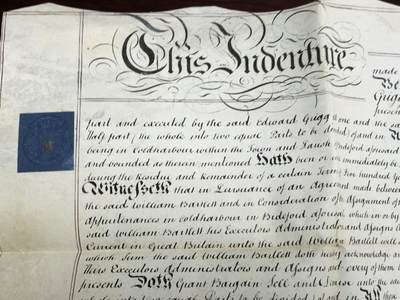 This Indenture
made
Be
Grigg
present
part and executed by the said Edward Grigg of one and the sa
Half part (the whole into two equal Parts to be divided) of and in
being in Coldharbour within the Town and Parish Bideford aforesaid
and bounded as therein mentioned Hath been or immediately be
during the Residue and Remainder of a certain Term Five Hundred
Witnesseth that in Pursuance of an Agreement made between
the said William Bartlett and in Consideration of the Assignment of
Appurtenances in Coldharbour in Bideford aforesaid
said William Bartlett his Executors Administrators and Assigns
Current in Great Britain unto the said William Bartlett well
which Sum the said William Bartlett doth hereby acknowledge and
Heirs Executors administrators and Assigns and every of them
presents Doth Grant Bargain Sell and unto the said
whole into two equal Parts to be divided and in